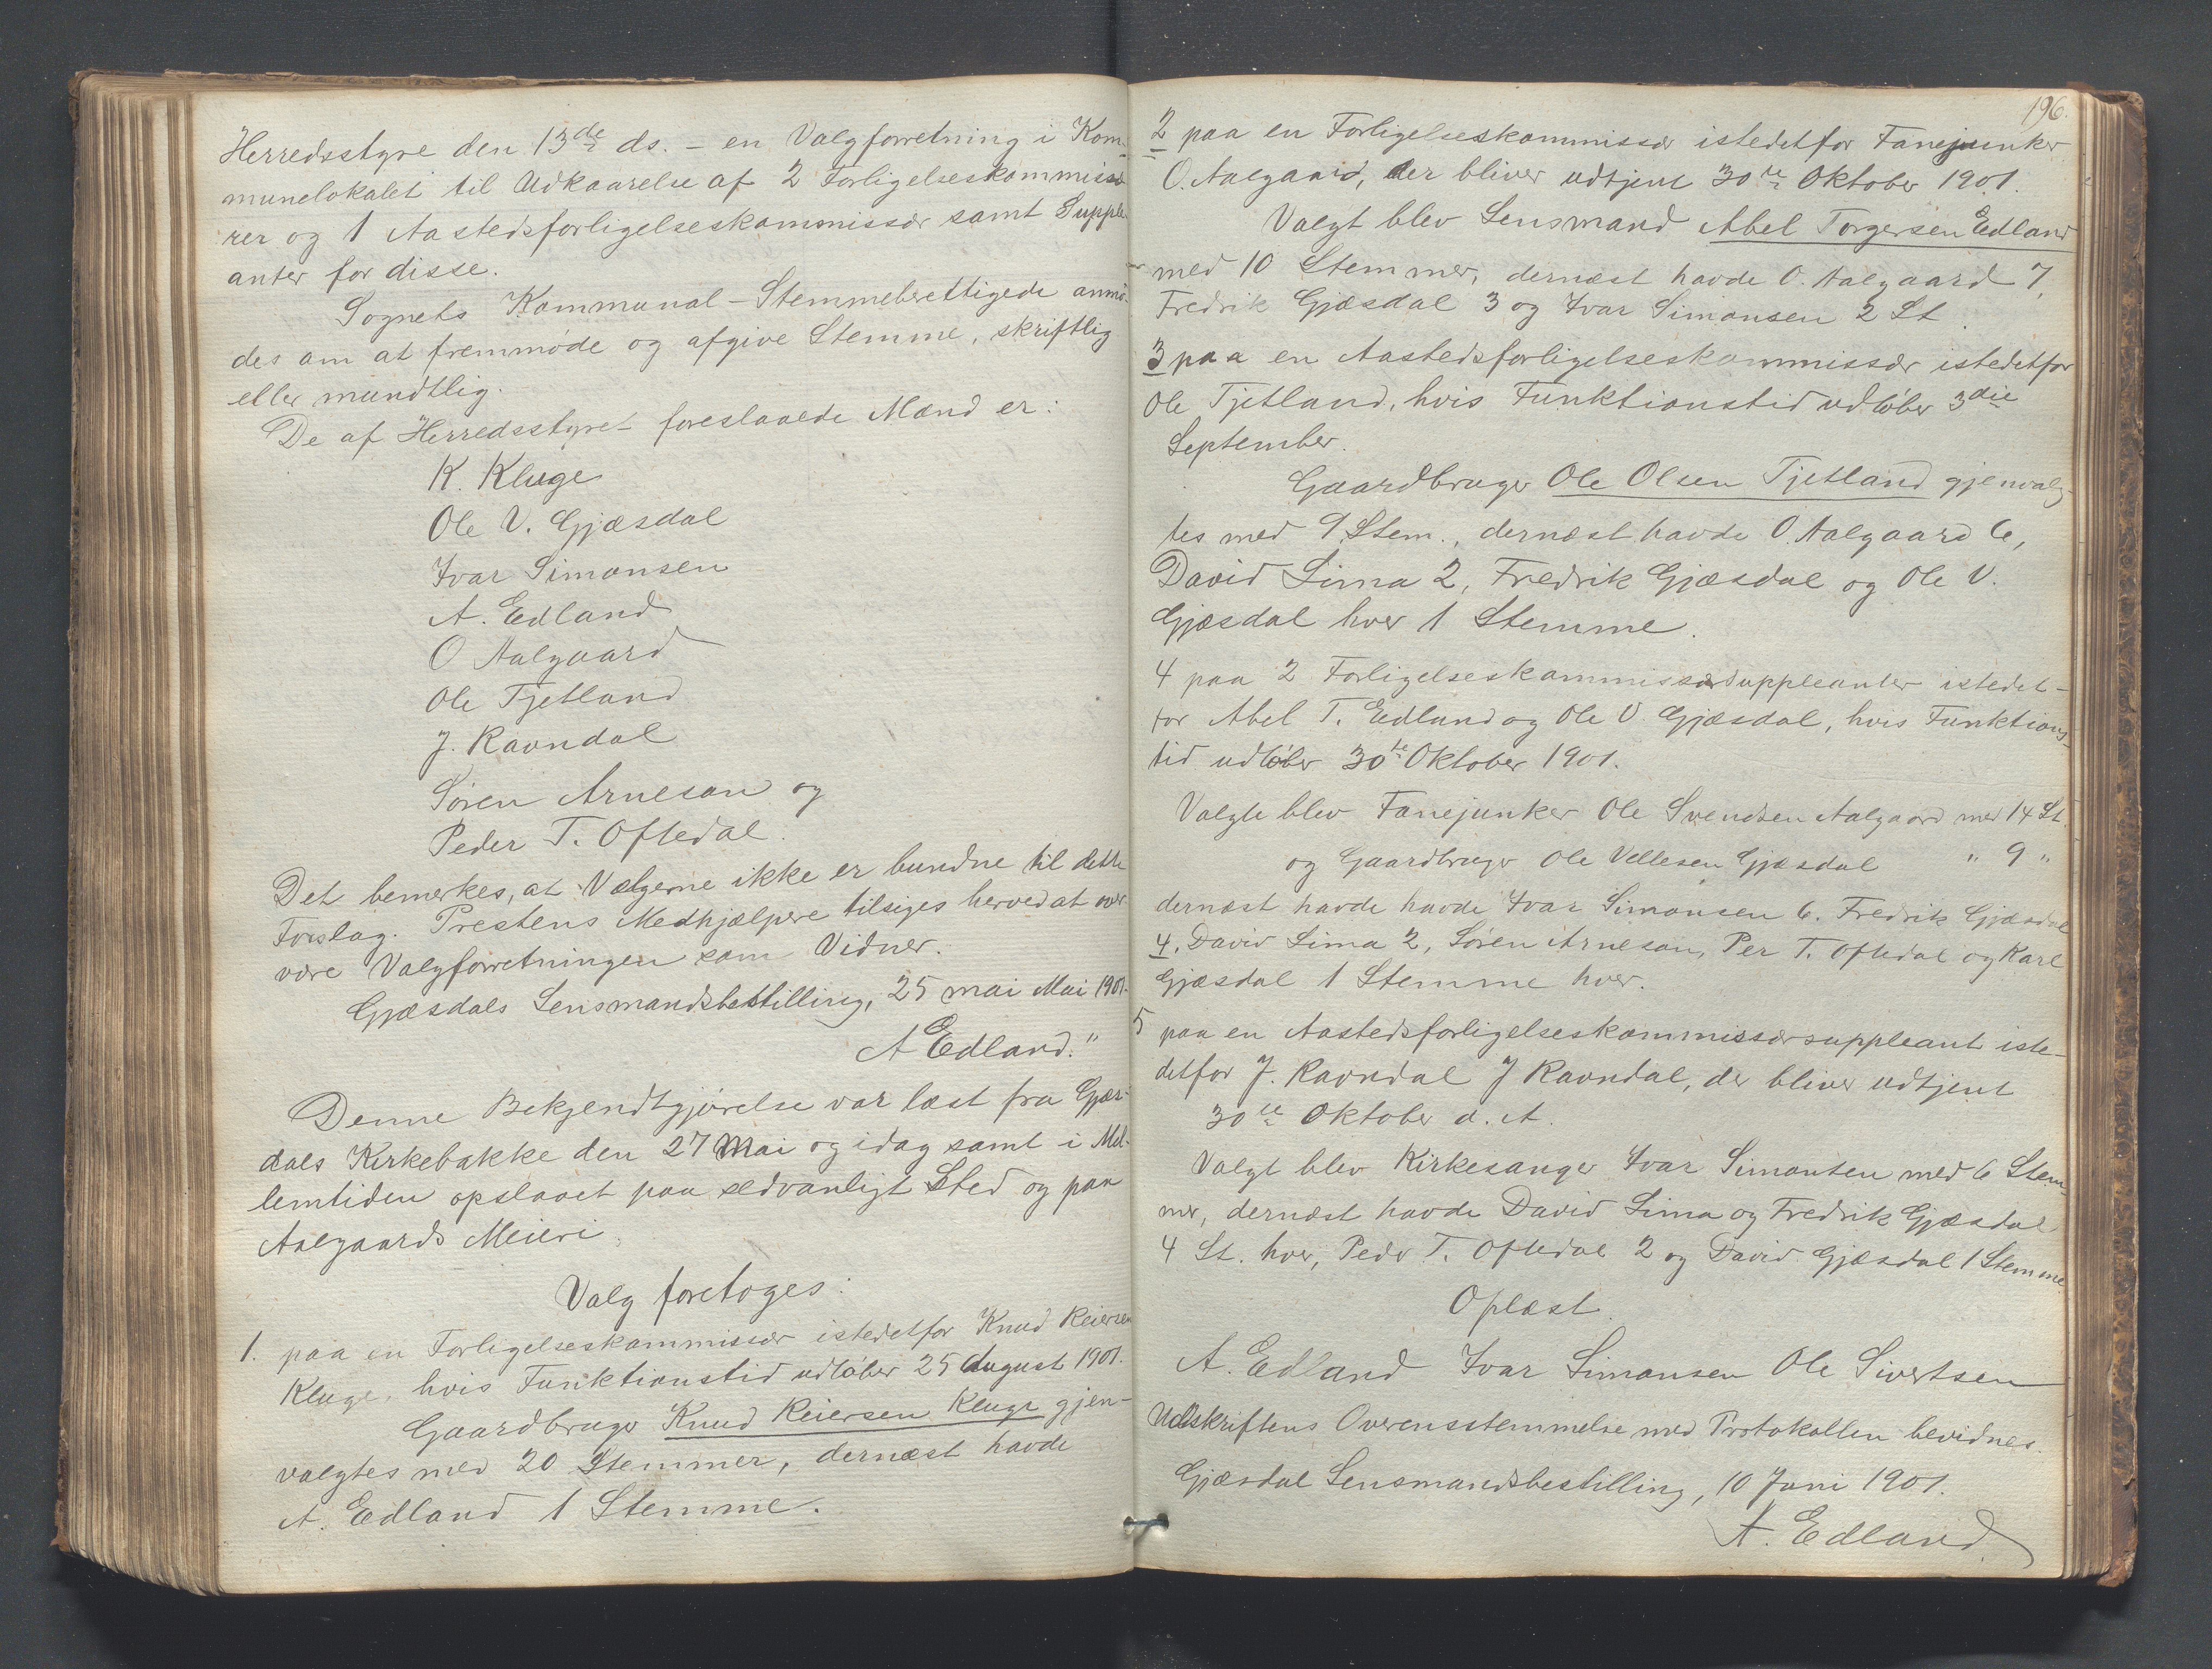 Herredsstyre den 13de ds. - en Valgforretning i Kom-
munelokalet til Udkaarelse af 2 Forligelseskommissæ
rer og 1 Aastedsforligelseskommissær samt Supple-
anter for disse.
Sognets Kommunal-Stemmeberettigede anmo-
des om at fremmøde og afgive Stemme, skriftlig
eller mundtlig.
De af Herredsstyret foreslaaede Mænd er:
K. Kluge
Ole V. Gjæsdal
Ivar Simonsen
A. Edland
O Aalgaard
Ole Tjetland
J. Ravndal
Søren Arneson og
Peder T. Oftedal.
Det bemerkes, at Vælgerne ikke er bundne til dette
Forslag. Prestens Medhjælpere tilsiges herved at over
være Valgforretningen som Vidner.
Gjæsdals Lensmandsbestilling, 25 mai Mai 1901.
A Edland."
Denne Bekjendtgjørelse var læst fra Gjæs-
dals Kirkebakke den 27 Mai og idag samt i Mel-
lemtiden opslaaet paa sedvanligt Sted og paa
Aalgaards Meieri.
Valg foretoges:
1. paa en Forligelseskommissær istedetfor Knud Reiersen
Kluge, hvis Funktionstid udløber 25 August 1901.
Gaardbruger Knud Reiersen Kluge gjen-
valgtes med 20 Stemmer, dernæst havde
A. Edland 1 Stemme.
196.
2 paa en Forligelseskommissær istedetfor Fanejunker
O. Aalgaard, der bliver udtjent 30te Oktober 1901.
Valgt blev Lensmand Abel Torgersen Edland
med 10 Stemmer, dernæst havde O. Aalgaard 7,
Fredrik Gjæsdal 3 og Ivar Simonsen 2 St.
3 paa en Aastedsforligelseskommissær istedetfor
Ole Tjetland, hvis Funktionstid udløber 3die
September.
Gaardbruger Ole Olsen Tjetland gjenvalg-
tes med 9 Stem., dernæst havde O. Aalgaard 6,
David Lima 2, Fredrik Gjæsdal og Ole V.
Gjæsdal hver 1 Stemme.
4 paa 2 Forligelseskommissærsuppleanter istedet-
for Abel T. Edland og Ole V. Gjæsdal, hvis Funktions-
tid udløber 30te Oktober 1901.
Valgte blev Fanejunker Ole Svendsen Aalgaard med 14 St.
og Gaardbruger Ole Vellesen Gjæsdal " 9 "
dernæst havde havde Ivar Simonsen 6. Fredrik Gjæsdal
4, David Lima 2, Søren Arneson, Per T. Oftedal og Karl
Gjæsdal 1 Stemme hver.
5 paa en Aastedsforligelseskommissærsuppleant iste-
detfor J. Ravndal J Ravndal, der bliver udtjent
30te Oktober d. A.
Valgt blev Kirkesanger Ivar Simonsen med 6 Stem-
mer, dernæst havde David Lima og Fredrik Gjæsdal
4 St. hver, Peder T. Oftedal 2 og David Gjæsdal 1 Stemme
Oplæst.
A. Edland Ivar Simonsen Ole Sivertsen
Udskriftens Overensstemmelse med Protokollen bevidnes.
Gjæsdal Lensmandsbestilling, 10 Juni 1901.
A. Edland.